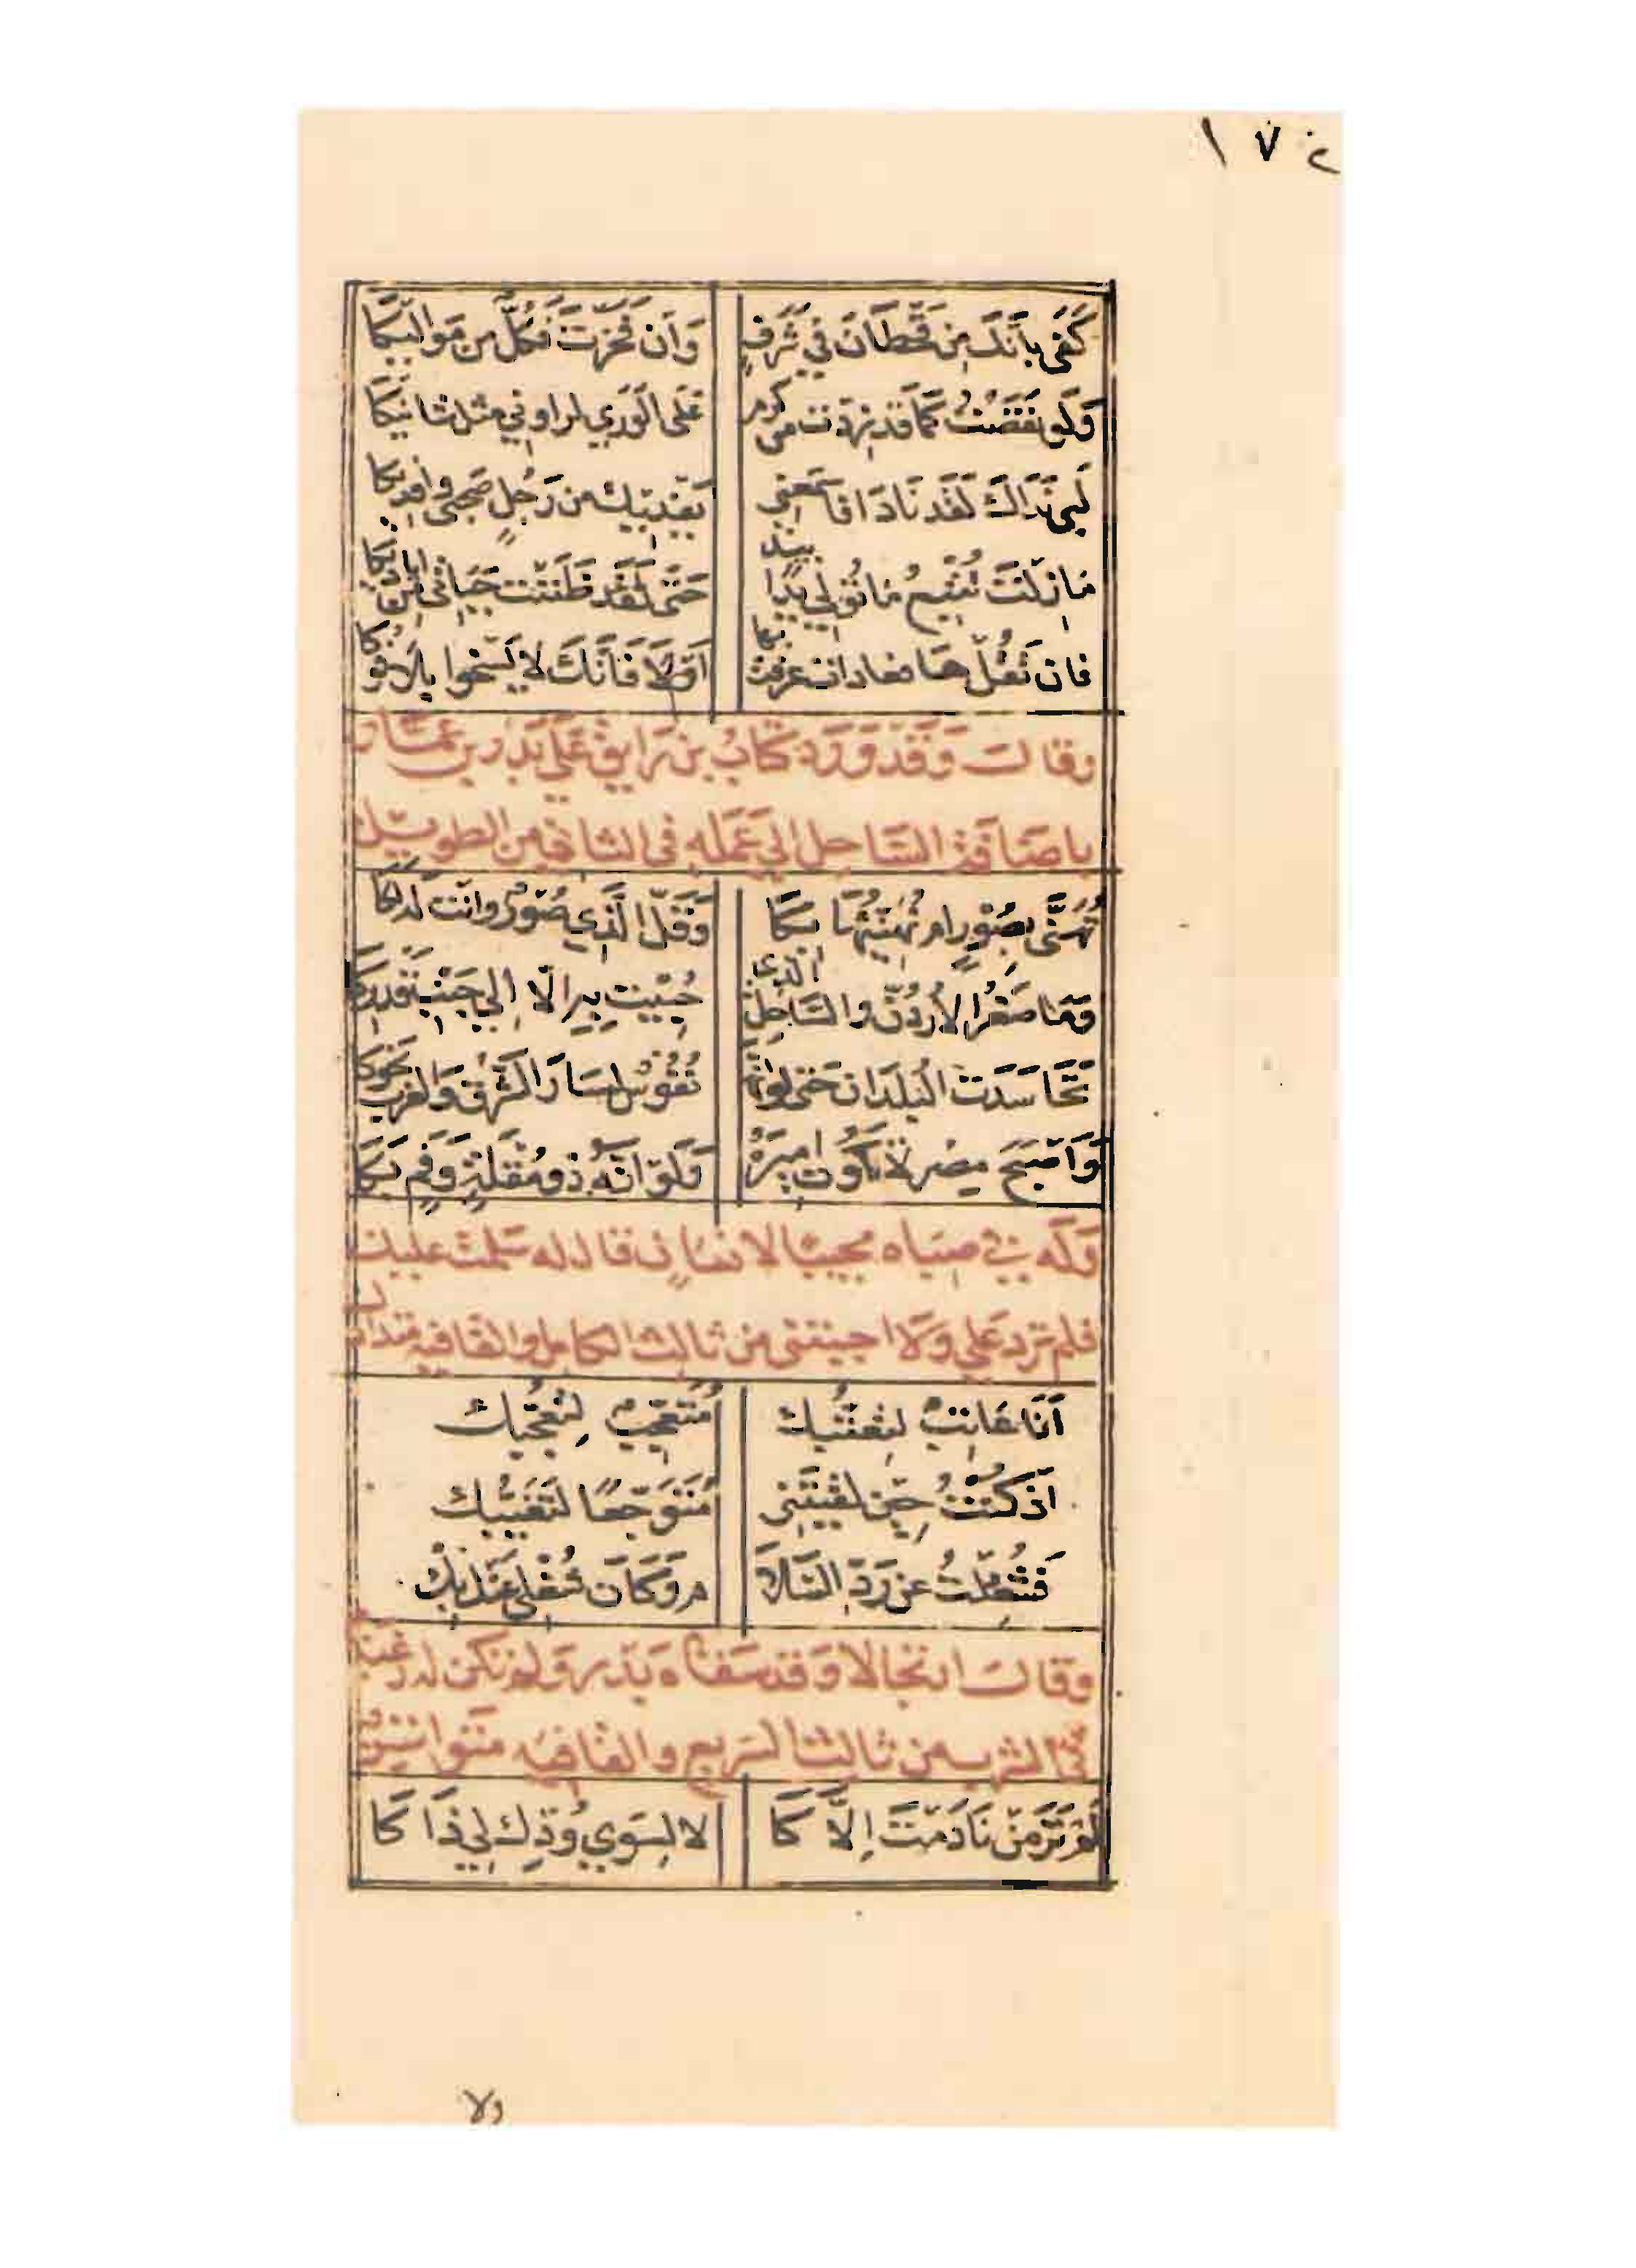 ١٧٤
كَفَى بِأَنَّكَ مِن قَحْطَانَ فِي شَرَفٍ وَاَن فَخَرْتَ فَكُلٌّ مِن مَوَالِيكَا
وَلَو نَقَصْتُ كَمَا قَد زِدْتَ من كرم عَلَى الوَرَي لراوني مثل شانيكَا
لَبَّى نَدَاكَ لَقَد نَادَا فاسمَعني يَفْدِيكَ من رَجُلٍ صَحبى وافديكا
مَا زِلْتَ تُتْبِعُ مَا تُولِي يَدًا بيد حَتَّى لَقَد ظَنَنْت حَيَاتي من اياديكا
فان تَقُلْ هَا فعادات عرفت بها اَوْلَا فَاَنَّكَ لا يَسْخوا بِلَا فوكا
وقالَ وَقَد وَرَدَ كتَابُ بن رَايق عَلَي بَدر بن عَمَّار
باضَافَة السَّاحل الي عَمَله في الثاني من الطويل
تُهَنَّى بِصُورٍ ام نُهَنِّئُهَا بِكَا وَقَلَّ الَّذِي صُورٌ وانت لَه لكَا
وَمَا صَغُرَ الاُرْدُنّ والسَّاحِلُ الذي حُبِيتَ بِه الّا اِلي جَنْبِ قَدرِكَا
تَحَاسَدَت البُلدَان حَتى لو انَّهَا نُفُوسٌ لسَارَ الشَّرْقُ وَالغرب نحوكا
وَاَصْبَحَ مِصْر لَا تَكُون اميرَهُ وَلَوَ انَّهُ ذو مُقلَةٍ وَفَمٍ بَكَا
وَلَه في صباه مجيبًا لانسَان قال له سَلمت عليك
فلم ترد عَلي وَلا اجبتني من ثالث الكامل والقافيه متدارك
اَنَا عَاتِبٌ لِتَعَتُّبِك مُتَعَجِّبٌ لِتَعَجُّبِك
اَذ كُنْتُ حِينَ لقيتَني مُتَوَجّعًا لتَغَيُّبِك
فَشُغِلْتُ عن رَدّ السَّلا م وَكَانَ شُغلي عَنك بِكْ
وقالَ ارتجالا وَقد سَقاه بَدر وَلم تكن له رغبة
في الشرب من ثالث السَريع والقافيه متواتر
لَم تَرَ مَن نَادَمْتَ اِلَّا كَا لا لِسِوَي وُدِّك لِي ذَا كَا
ولا